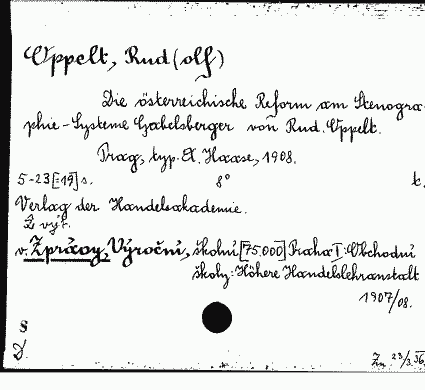 Oppelt, Rud(olf)
Die österreichische Reform am Stenogra-
phie-Systeme Gabelsberger von Rud. Oppelt.
Prag, typ. A. Haase, 1908.
5-23[=19] s. 8° k.
Verlag der Handelsakademie.
Z výr.
v. Zprávy, Výroční, školní [75.000] Praha I: Obchodní
školy: Höhere Handelslehranstalt
1907/08.
S
D.
Zn. 23/3.